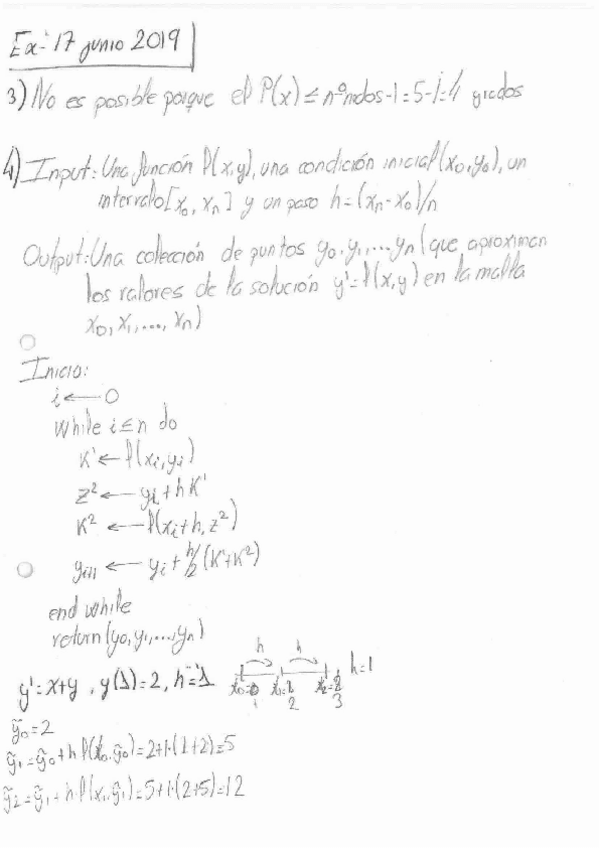 Ex: 17 junio 2019
3) No es posible porque el P(x) ≤ nºndos-1=5-1=4 grados
4) Input: Una función f(x,y), una condición inicial (x₀,y₀), un
intervalo [x₀, xₙ] y un paso h=(xₙ-x₀)/n
Output: Una colección de puntos y₀,y₁,...yₙ (que aproximan
los valores de la solución y'=f(x,y) en la malla
x₀,x₁,...,xₙ)
Inicio:
i ← 0
while i≤n do
K¹ ← f(xᵢ,yᵢ)
z² ← yᵢ+hK¹
K² ← f(xᵢ+h,z²)
yᵢ₊₁ ← yᵢ+h/2(K¹+K²)
end while
return (y₀,y₁,...,yₙ)
h h
y'=x+y , y(1)=2, h=1 h=1
1 2 3
ỹ₀=2
ỹ₁=ỹ₀+h f(x₀,ỹ₀)=2+1·(1+2)=5
ỹ₂=ỹ₁+h·f(x₁,ỹ₁)=5+1·(2+5)=12